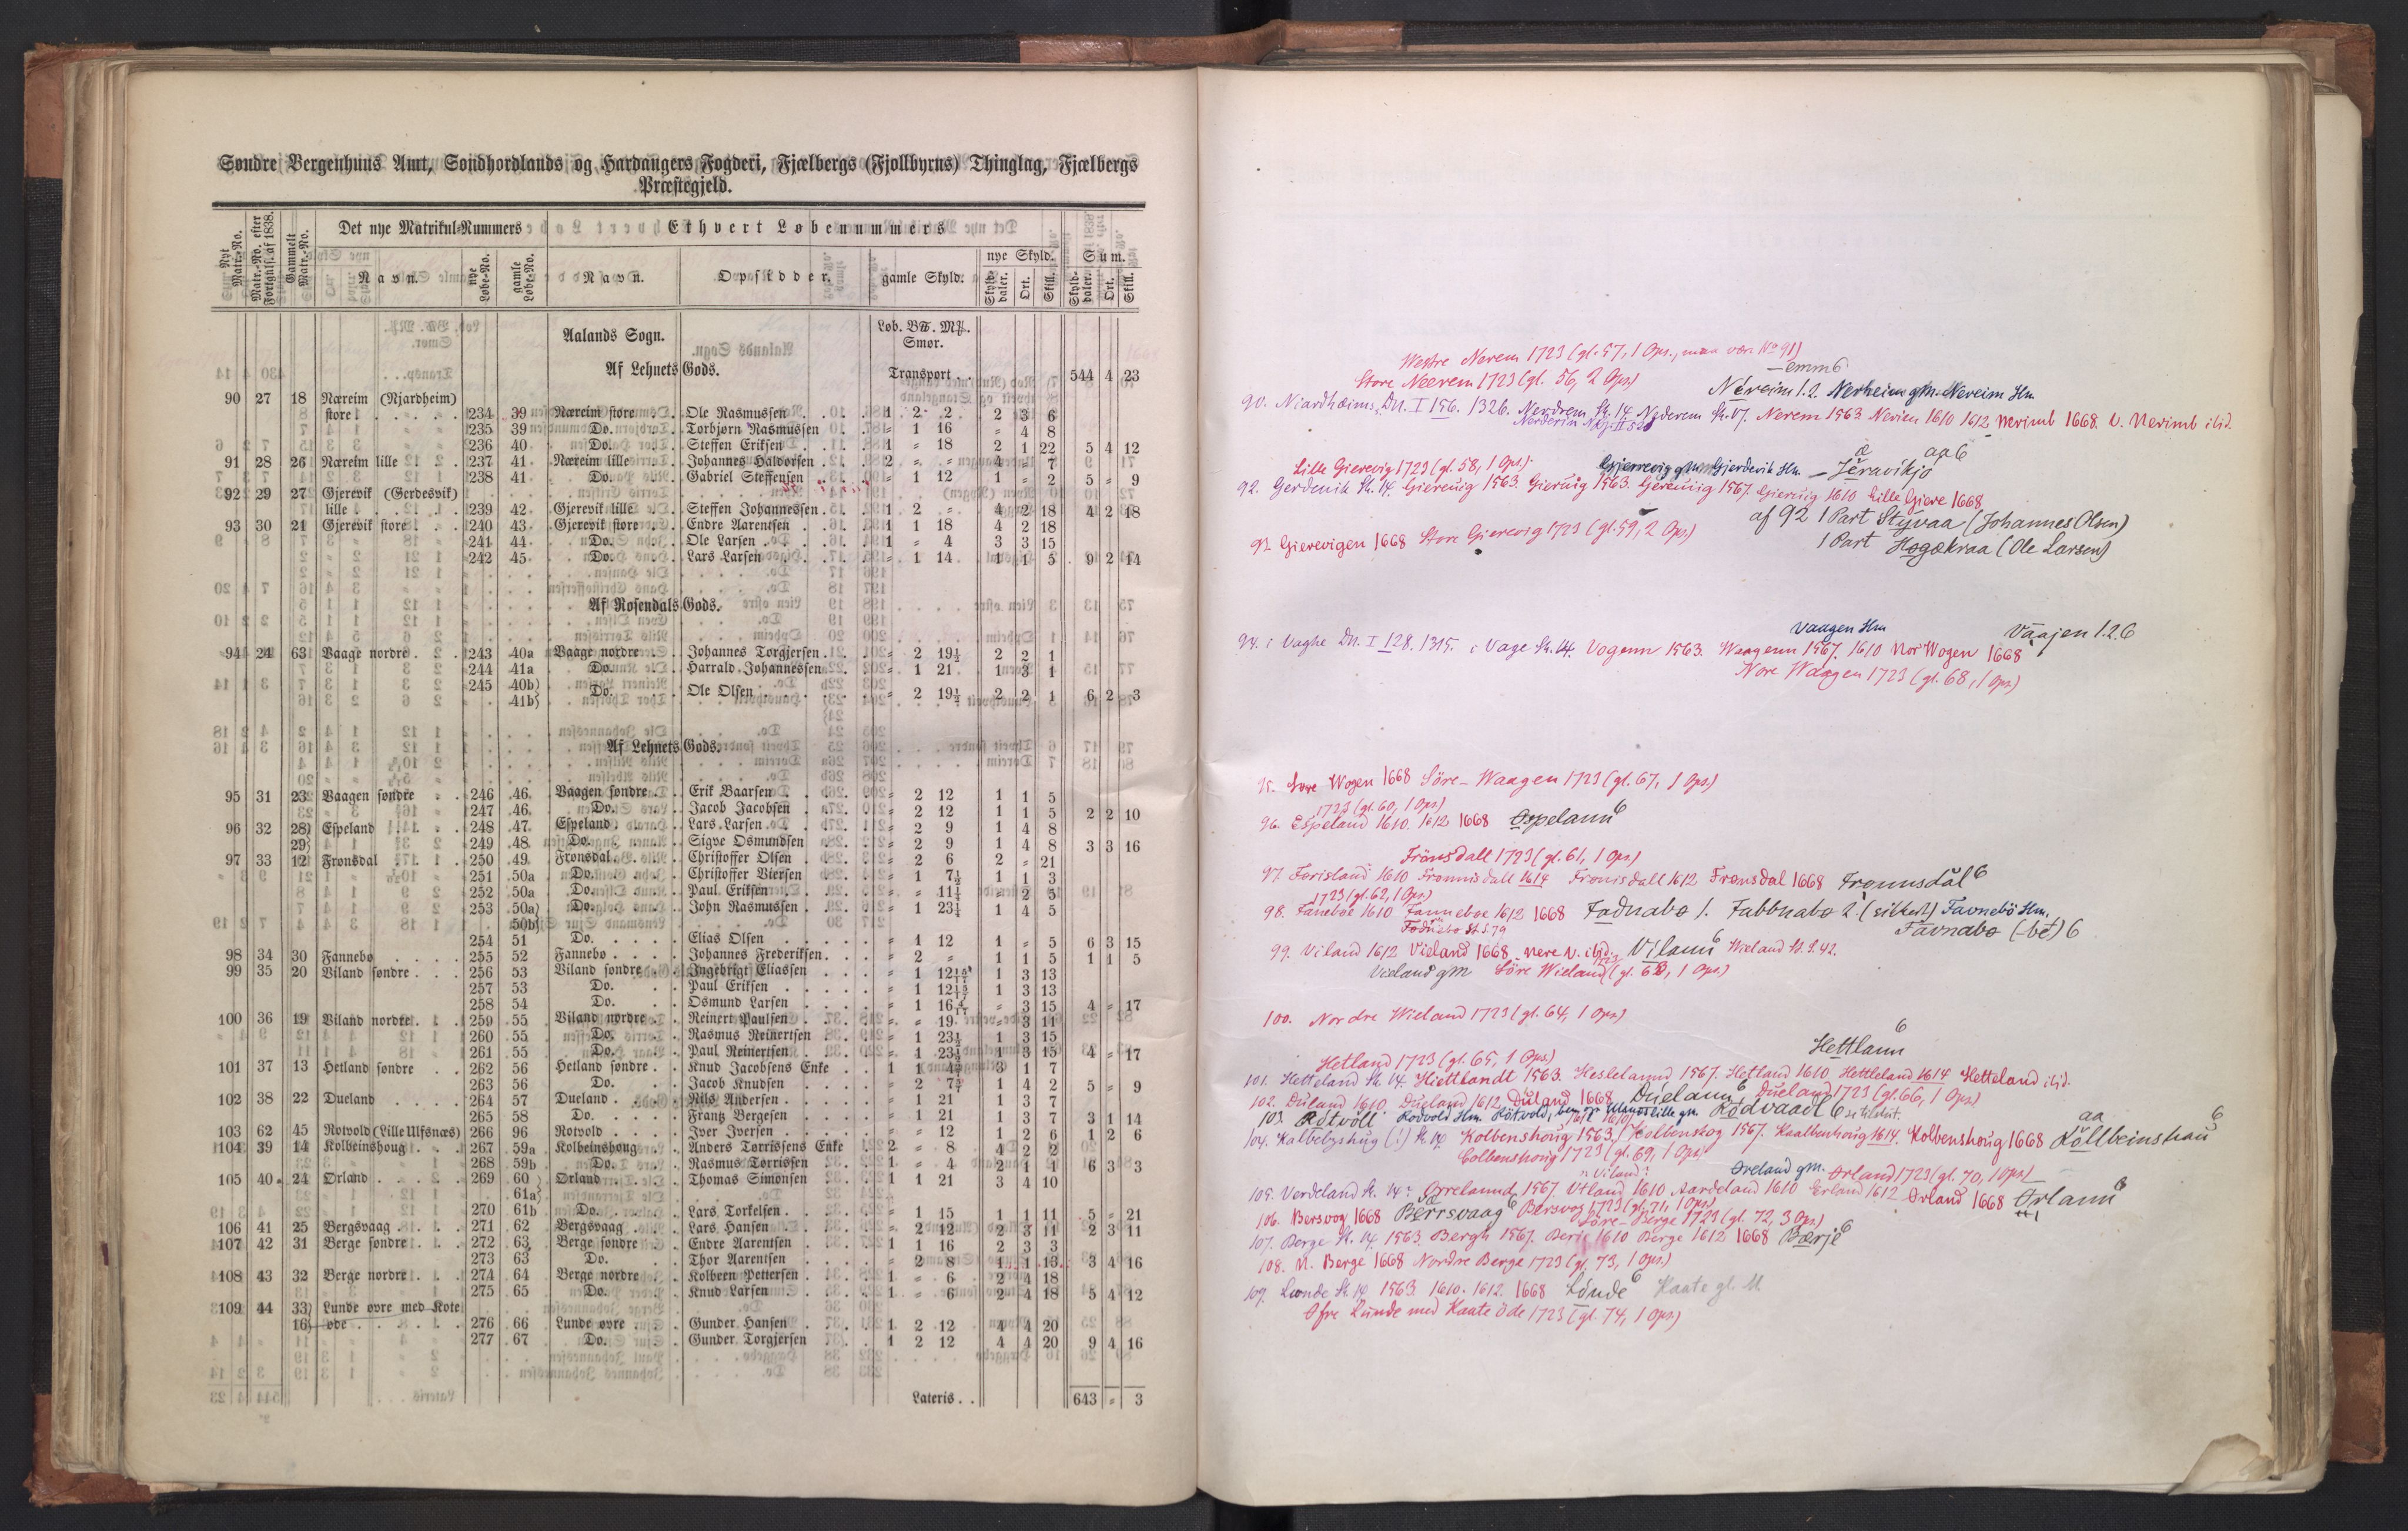 Søndre Bergenhuus Amt, Søndhordlands og Hardangers Fogderi, Fjælbergs (Fjollbyrns) Thinglag, Fjælbergs
Præstegjeld.
Nyt Matr.-No.
Matr.-No. efter Fortegnif. af 1838.
Gammelt Matr.-No.
Det nye Matrikul-Nummers
Ethvert Løbenummers
Navn.
nye Løbe-No.
gamle Løbe-No.
Navn.
Opsidder.
gamle Skyld.
nye Skyld.
Sum.
Skylddaler. Ort. Skill. Skylddaler. Ort. Skill.
Aalands Sogn. Løb. B℔. M℔.
Smør.
Af Lehnets Gods. Transport . . 544 4 23
90 27 18 Næreim (Njardheim)
store . . . . . 234 39 Næreim store . . Ole Rasmussen . . . 1 2 2 2 3 6
235 39 Do. Torbjørn Rasmussen . = 1 16 = 4 8
236 40 Do. Steffen Eriksen . . . 1 = 18 2 1 22 5 4 12
91 28 26 Næreim lille . . . 237 41 Næreim lille . . Johannes Haldorsen . . 2 = = 4 1 7
238 41 Do. Gabriel Steffensen . . = 1 12 1 = 2 5 = 9
92 29 27 Gjerevik (Gerdesvik)
lille . . . . . 239 42 Gjerevik lille . . Steffen Johannessen . . 1 2 = 4 2 18 4 2 18
93 30 21 Gjerevik store . . . 240 43 Gjerevik store . . Endre Aarentsen . . . 1 1 18 4 2 18
241 44 Do. Ole Larsen . . . . 1 = 4 3 3 15
242 45 Do. Lars Larsen . . . . = 1 14 1 1 5 9 2 14
Af Rosendals Gods.
94 24 63 Vaage nordre . . . 243 40a Vaage nordre . . Johannes Torgjersen . . = 2 19½ 2 2 1
244 41a Do. Harrald Johannessen . = 1 21 1 3 1
245 40b)
41b) Do. Ole Olsen . . . . = 2 19½ 2 2 1 6 2 3
Af Lehnets Gods.
95 31 23 Vaagen søndre . . 246 46 Vaagen søndre . . Erik Baarsen . . . = 2 12 1 1 5
247 46 Do. Jacob Jacobsen . . = 2 12 1 1 5 2 2 10
96 32 28) Espeland . . . . 248 47 Espeland . . . Lars Larsen . . . = 2 9 1 4 8
29) 249 48 Do. Sigve Osmundsen . = 2 9 1 4 8 3 3 16
97 33 12 Frønsdal . . . . 250 49 Frønsdal . . . Christoffer Olsen . . = 2 6 2 = 21
251 50a Do. Christoffer Viersen . = 1 7½ 1 1 3
252 50a Do. Paul Eriksen . . . = = 11¼ = 2 5
253 50a) Do. John Rasmussen . . = 1 23¼ 1 4 5
50b)
254 51 Do. . . . . Elias Olsen . . . . = 1 12 1 = 5 6 3 15
98 34 30 Fannebø . . . . 255 52 Fannebø . . . . Johannes Frederiksen . . = 2 = 1 1 5 1 1 5
99 35 20 Viland søndre . . . 256 53 Viland søndre . . Ingebrigt Eliassen . . = 1 12 1 3 13
257 53 Do. Paul Eriksen . . . . = 1 12 1 3 13
258 54 Do. Osmund Larsen . . . = 1 16 = 3 15 4 = 17
100 36 19 Viland nordre . . . 259 55 Viland nordre . . Reinert Paulsen . . . = = 19 = 3 11
260 55 Do. Rasmus Reinertsen . = 1 23½ 1 3 15
261 55 Do. Paul Reinertsen . . = 1 23½ 1 3 15 4 = 17
101 37 13 Hetland søndre . . 262 56 Hetland søndre . . Knud Jacobsens Enke . . 1 1 3 1 7
263 56 Do. Jacob Knudsen . . . = 2 1 4 2 5 = 9
102 38 22 Dueland . . . . 264 57 Dueland . . . Nils Andersen . . . . = 1 21 1 3 7
265 58 Do. Frantz Bergesen . . . = 1 21 1 3 7 3 1 14
103 62 45 Rotvold (Lille Ulfsnæs) 266 96 Rotvold . . . . Iver Iversen . . . . = = 12 1 2 6 1 2 6
104 39 14 Kolbeinshoug . . . 267 59a Kolbeinshoug . . Anders Tørrissens Enke . 2 = 8 4 2 2
268 59b Do. Rasmus Tørrissen . . = = 4 2 1 1 6 3 3
105 40 24 Ørland . . . . 269 60 Ørland . . . . Thomas Simonsen . . 1 1 21 3 4 10
61a)
270 61b) Do. Lars Torkelsen . . . = 1 15 1 1 11 5 = 21
106 41 25 Bergsvaag . . . . 271 62 Bergsvaag . . . Lars Hansen . . . . = 2 12 2 3 11 2 3 11
107 42 31 Berge søndre . . . 272 63 Berge søndre . . Endre Aarentsen . . . 1 1 16 2 3 3
273 63 Do. Thor Aarentsen . . . = 2 8 1 1 13 3 4 16
108 43 32 Berge nordre . . . 274 64 Berge nordre . . Kolbeen Pettersen . . . 1 = 6 2 4 18
275 65 Do. Knud Larsen . . . . 1 = 6 2 4 18 5 4 12
109 44 33) Lunde øvre med Kote
16) øde . . . . 276 66 Lunde øvre . . . Gunder Hansen . . . 1 2 12 4 4 20
277 67 Do. Gunder Torgjersen . . 1 2 12 4 4 20 9 4 16
Lateris . . 643 = 3
Westre Nerem 1723 (gl. 57, 1 Ops., maa være No 91)
Store Neerem 1723 (gl. 56, 2 Ops)
—emm6
Néreim 1.2. Nerheim gm. Nereim Hm
90. Niardhæims, DN. I 156. 1326. Nerdrem St. 14. Nederem St. 17. Nerem 1563. Nerien 1610 1612 Nerimb 1668. V. Nerimb ibid.
Lille Gierevig 1723 (gl. 58, 1 Ops). Gjerrevig gm. Gjerdevik Hm. — Jeravikjo
92. Gerdenik St. 14. Giereuig 1563. Gieruig 1563. Gereuiig 1567. Gieruig 1610 Lille Giere 1668
af 92 1 Part Styvaa (Johannes Olsen)
93. Gierevigen 1668 Store Gierevig 1723 (gl. 59, 2 Ops)
1 Part Hogækraa (Ole Larsen)
Vaagen Hm Vaajen 1.2.6
94. i Vaghe DN. I 128. 1315. i Vage St. 14. Vogenn 1563. Waagenn 1567. 1610 Nor Wogen 1668
Nore Waagen 1723 (gl. 68, 1 Ops)
95. Søre Wogen 1668 Söre-Waagen 1723 (gl. 67, 1 Ops)
1723 (gl. 60, 1 Ops)
96. Espeland 1610. 1612 1668 Espelann 6
Frönsdall 1723 (gl. 61, 1 Ops)
97. Forisland 1610 Fronnisdall 1614 Fronisdall 1612 Fronsdal 1668 Fronnsdål 6
1723 (gl. 62, 1 Ops)
98. Faneboe 1610 Fanneboe 1612 1668 Fadnabø 1. Fabbnabø 2. (sikkert) Favnebö Hm.
Favnabø (-bet) 6
99. Viland 1612 Vieland 1668 nere N. ibid. Vilann 6 Wieland St. S. 42.
Vieland gm Söre Wieland 1723 (gl. 63, 1 Ops)
100. Nordre Wieland 1723 (gl. 64, 1 Ops)
Hettlann 6
Hetland 1723 (gl. 65, 1 Ops.)
101. Hetteland St. 14. Hiettlandt 1563. Heslelannd 1567. Hetland 1610. Hettleland 1614 Hetteland ibid.
102. Duland 1610 Dueland 1612 Duland 1668 Duelann 6 Dueland 1723 (gl. 66, 1 Ops)
103. Rotvoll Rodvold Hm. Rötvold, Ulsnes lille gm. Rodvadd 6
104. Kolbenshoug 1563. Kolbenskog 1567. Kaalbenhoug 1614. Kolbenshoug 1668 Kollbeinshau 6
Colbenshoug 1723 (gl. 69, 1 Ops)
Øreland gm. Orland 1723 (gl. 70, 1 Ops)
105. Verdeland St. 14. Ørrelannd 1567. Utland 1610 Aardeland 1610 Erland 1612 Orland 1668 Ørlann 6
106. Bersvog 1668 Bærrsvaag 6 Bersvog 1723 (gl. 71, 1 Ops)
Söre-Berge 1723 (gl. 72, 3 Ops)
107. Berge St. 14. 1563. Bergh 1567. Berie 1610 Berge 1612 1668 Bærje 6
108. N. Berge 1668 Nordre Berge 1723 (gl. 73, 1 Ops.)
109. Lunde St. 14 1563 1610. 1612. 1668 Lönde 6 Kaate gl. M.
Öfre Lunde med Kaate öde 1723 (gl. 74, 1 Ops)